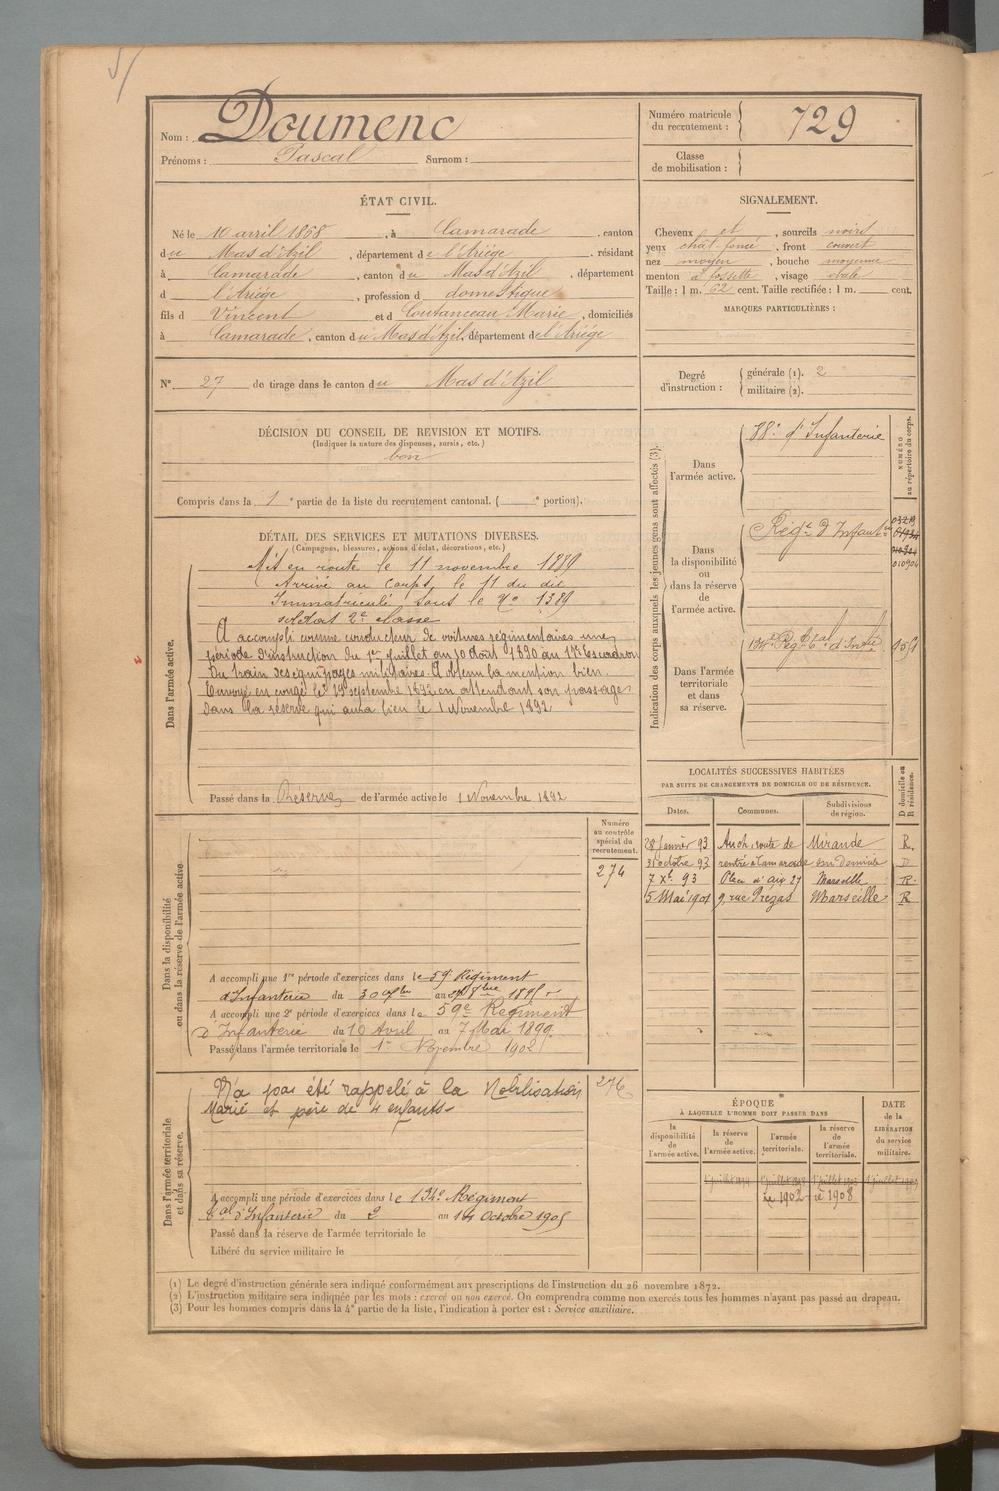 Nom : Doumenc
Prénoms : Pascal Surnom :
Numéro matricule du recrutement : 729
Classe de mobilisation :
ÉTAT CIVIL.
Né le 10 avril 1868, à Camarade, canton
du Mas d'Azil, département de l'Ariège, résidant
à Camarade, canton du Mas d'Azil, département
d l'Ariège, profession d domestique
fils d Vincent et d Coutanceau Marie, domiciliés
à Camarade, canton du Mas d'Azil, département de l'Ariège
N° 27 de tirage dans le canton du Mas d'Azil
SIGNALEMENT.
Cheveux et, sourcils noirs
yeux chât. foncé, front couvert
nez moyen, bouche moyenne
menton à fossette, visage ovale
Taille : 1 m. 62 cent. Taille rectifiée : 1 m. cent.
MARQUES PARTICULIÈRES :
Degré d'instruction : générale (1). 2
militaire (2).
DÉCISION DU CONSEIL DE REVISION ET MOTIFS.
(Indiquer la nature des dispenses, sursis, etc.)
bon
Compris dans la 1e partie de la liste du recrutement cantonal. ( e portion).
DÉTAIL DES SERVICES ET MUTATIONS DIVERSES.
(Campagnes, blessures, actions d'éclat, décorations, etc.)
Dans l'armée active.
Mis en route le 11 novembre 1889
Arrivé au corps le 11 du dit
Immatriculé sous le No 1389
soldat 2e classe
A accompli comme conducteur de voitures régimentaires une
période d'instruction du 1er Juillet au 10 Août 1890 au 17e Escadron
du train des équipages militaires A obtenu la mention bien.
Envoyé en congé le 19 septembre 1892 en attendant son passage
dans la réserve qui aura lieu le 1 Novembre 1892
Passé dans la Réserve de l'armée active le 1 Novembre 1892
Dans la disponibilité ou dans la réserve de l'armée active.
Numéro au contrôle spécial du recrutement.
274
A accompli une 1re période d'exercices dans le 59e Régiment
d'Infanterie du 30 au 8bre 1895
A accompli une 2e période d'exercices dans le 59e Régiment
d'Infanterie du 10 Avril au 7 Mai 1899
Passé dans l'armée territoriale le 1er Novembre 1902
Dans l'armée territoriale et dans sa réserve.
N'a pas été rappelé à la Mobilisation
Marié et père de 4 enfants
276
A accompli une période d'exercices dans le 134e Régiment
tal d'Infanterie du 2 au 14 Octobre 1905
Passé dans la réserve de l'armée territoriale le
Libéré du service militaire le
Indication des corps auxquels les jeunes gens sont affectés (3).
NUMÉRO au répertoire du corps.
Dans l'armée active. 88e d'Infanterie
Dans la disponibilité ou dans la réserve de l'armée active. Régt d'Infantie
010904
Dans l'armée territoriale et dans sa réserve. 134e Régt tal d'Infie
LOCALITÉS SUCCESSIVES HABITÉES
PAR SUITE DE CHANGEMENTS DE DOMICILE OU DE RÉSIDENCE.
D domicile ou R résidence.
Dates. Communes. Subdivisions de région.
28 Janvier 93 Auch, route de Mirande R.
31 octobre 93 rentré à Camarade son Domicile D
7 Xe 93 Place d'Aix 27 Marseille R.
15 Mai 1901 9, rue Marseille R
ÉPOQUE
À LAQUELLE L'HOMME DOIT PASSER DANS
DATE de la LIBÉRATION du service militaire.
la disponibilité de l'armée active.
la réserve de l'armée active.
l'armée territoriale.
la réserve de l'armée territoriale.
re 1902 re 1908
(1) Le degré d'instruction générale sera indiqué conformément aux prescriptions de l'instruction du 26 novembre 1872.
(2) L'instruction militaire sera indiquée par les mots : exercé ou non exercé. On comprendra comme non exercés tous les hommes n'ayant pas passé au drapeau.
(3) Pour les hommes compris dans la 4e partie de la liste, l'indication à porter est : Service auxiliaire.